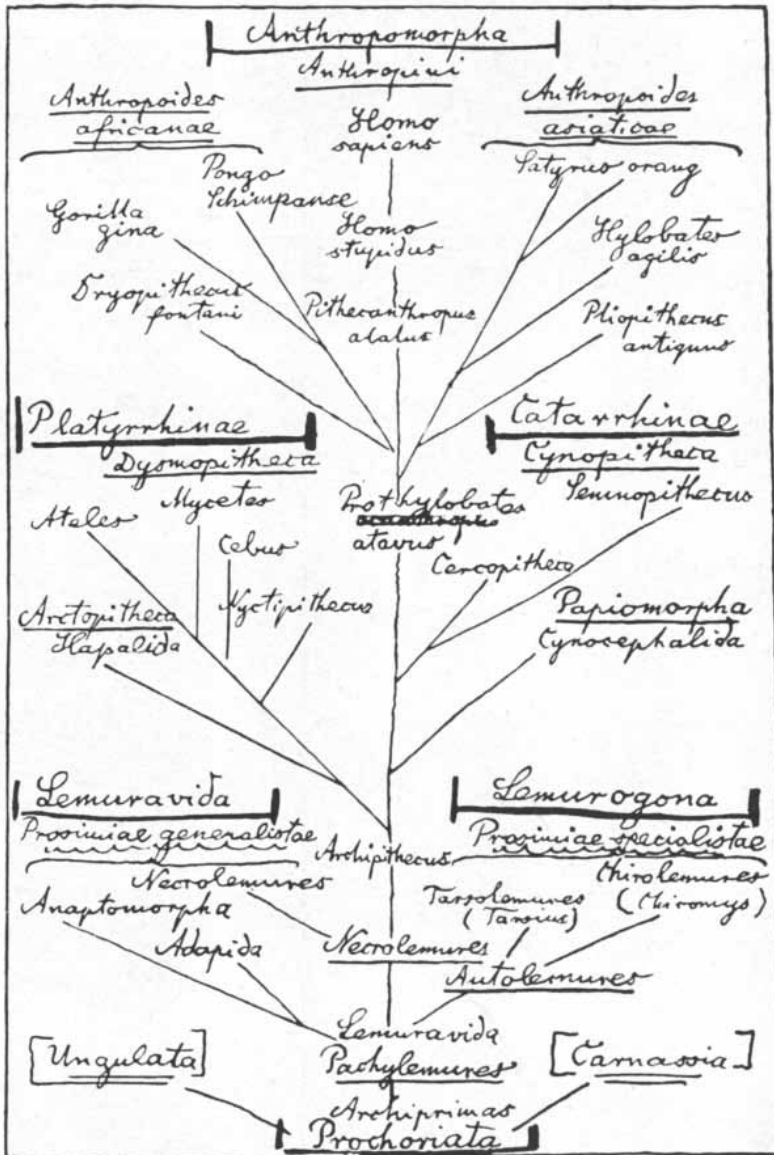 Anthropomorpha
Anthropini
Anthropoides
africanae
Anthropoides
asiaticae
Homo
sapiens
Satyrus orang
Pongo
Schimpanse
Gorilla
gina
Homo
stupidus
Hylobates
agilis
Dryopithecus
fontani
Pithecanthropus
alalus
Pliopithecus
antiquus
Platyrrhinae
Dysmopitheca
Catarrhinae
Cynopitheca
Mycetes
Semnopithecus
Ateles
Prothylobates
atavus
Cebus
Cercopitheca
Nyctipithecus
Arctopitheca
Hapalida
Papiomorpha
Cynocephalida
Lemuravida
Prosimiae generalistae
Lemurogona
Prosimiae specialistae
Archipithecus
Necrolemures
Chirolemures
(Chiromys)
Anaptomorpha
Tarsolemures
(Tarsius)
Adapida
Necrolemures
Autolemures
Lemuravida
Pachylemures
[Ungulata]
[Carnassia]
Archiprimas
Prochoriata